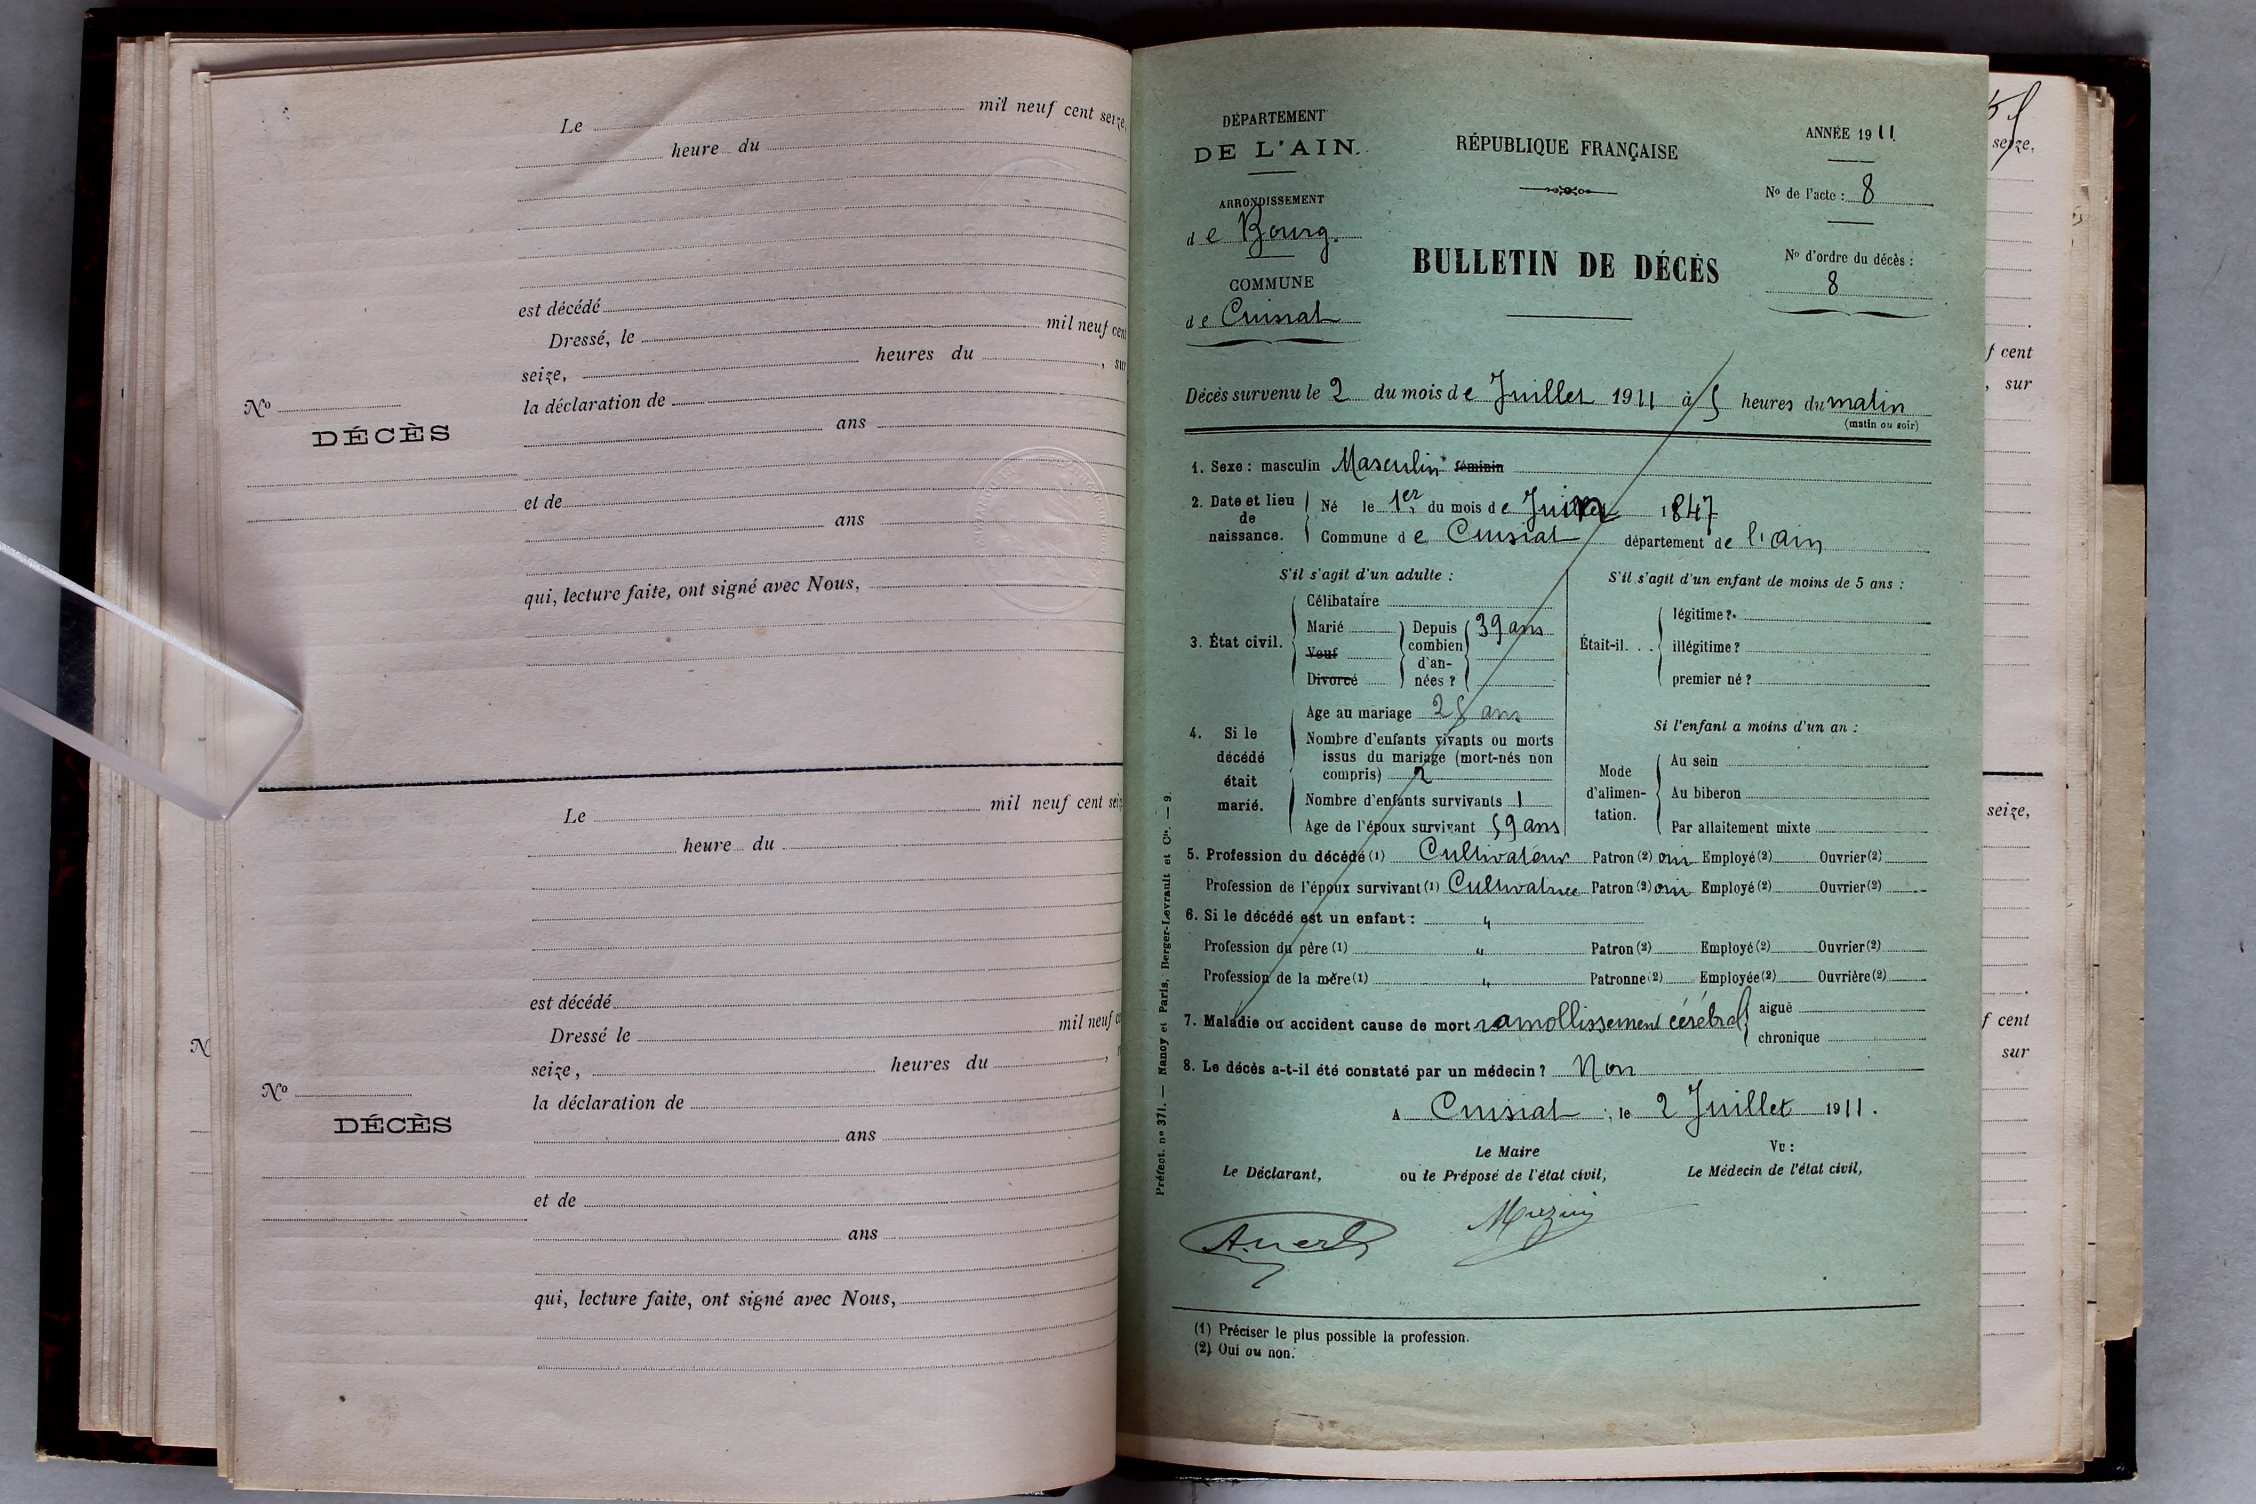 Le mil neuf cent seize,
heure du
est décédé
Dressé, le mil neuf cent
seize, heures du , sur
la déclaration de
ans
No
DÉCÈS
et de
ans
qui, lecture faite, ont signé avec Nous,
Le mil neuf cent seiz
heure du
est décédé
Dressé le mil neuf c
seize, heures du ,
la déclaration de
No
DÉCÈS
ans
et de
ans
qui, lecture faite, ont signé avec Nous,
N
DÉPARTEMENT
DE L'AIN.
ARRONDISSEMENT
de Bourg.
COMMUNE
de Cuisiat
RÉPUBLIQUE FRANÇAISE
BULLETIN DE DÉCÈS
ANNÉE 1911
No de l'acte : 8
No d'ordre du décès :
8
Décès survenu le 2 du mois de Juillet 1911 à 5 heures du matin
(matin ou soir)
1. Sexe : masculin Masculin féminin
2. Date et lieu de naissance.
Né le 1er du mois de Juin 1847
Commune de Cuisiat département de l'Ain
S'il s'agit d'un adulte :
3. État civil.
Célibataire
Marié
Veuf
Divorcé
Depuis combien d'an-
nées ?
39 ans
S'il s'agit d'un enfant de moins de 5 ans :
Était-il. . .
légitime ?
illégitime ?
premier né ?
4. Si le
décédé
était
marié.
Age au mariage 25 ans
Nombre d'enfants vivants ou morts
issus du mariage (mort-nés non
compris) 2
Nombre d'enfants survivants 1
Age de l'époux survivant 59 ans
Si l'enfant a moins d'un an :
Mode
d'alimen-
tation.
Au sein
Au biberon
Par allaitement mixte
5. Profession du décédé (1) Cultivateur Patron (2) oui Employé (2) Ouvrier (2)
Profession de l'époux survivant (1) Cultivatrice Patron (2) oui Employé (2) Ouvrier (2)
6. Si le décédé est un enfant : "
Profession du père (1) " Patron (2) Employé (2) Ouvrier (2)
Profession de la mère (1) " Patronne (2) Employée (2) Ouvrière (2)
7. Maladie ou accident cause de mort ramollissement cérébral aiguë
chronique
8. Le décès a-t-il été constaté par un médecin ? Non
A Cuisiat , le 2 Juillet 1911.
Le Déclarant,
Le Maire
ou le Préposé de l'état civil,
Vu :
Le Médecin de l'état civil,
(1) Préciser le plus possible la profession.
(2) Oui ou non.
Préfect. no 371. — Nancy et Paris, Berger-Levrault et Cie. — 9.
seize,
f cent
, sur
seize,
f cent
sur